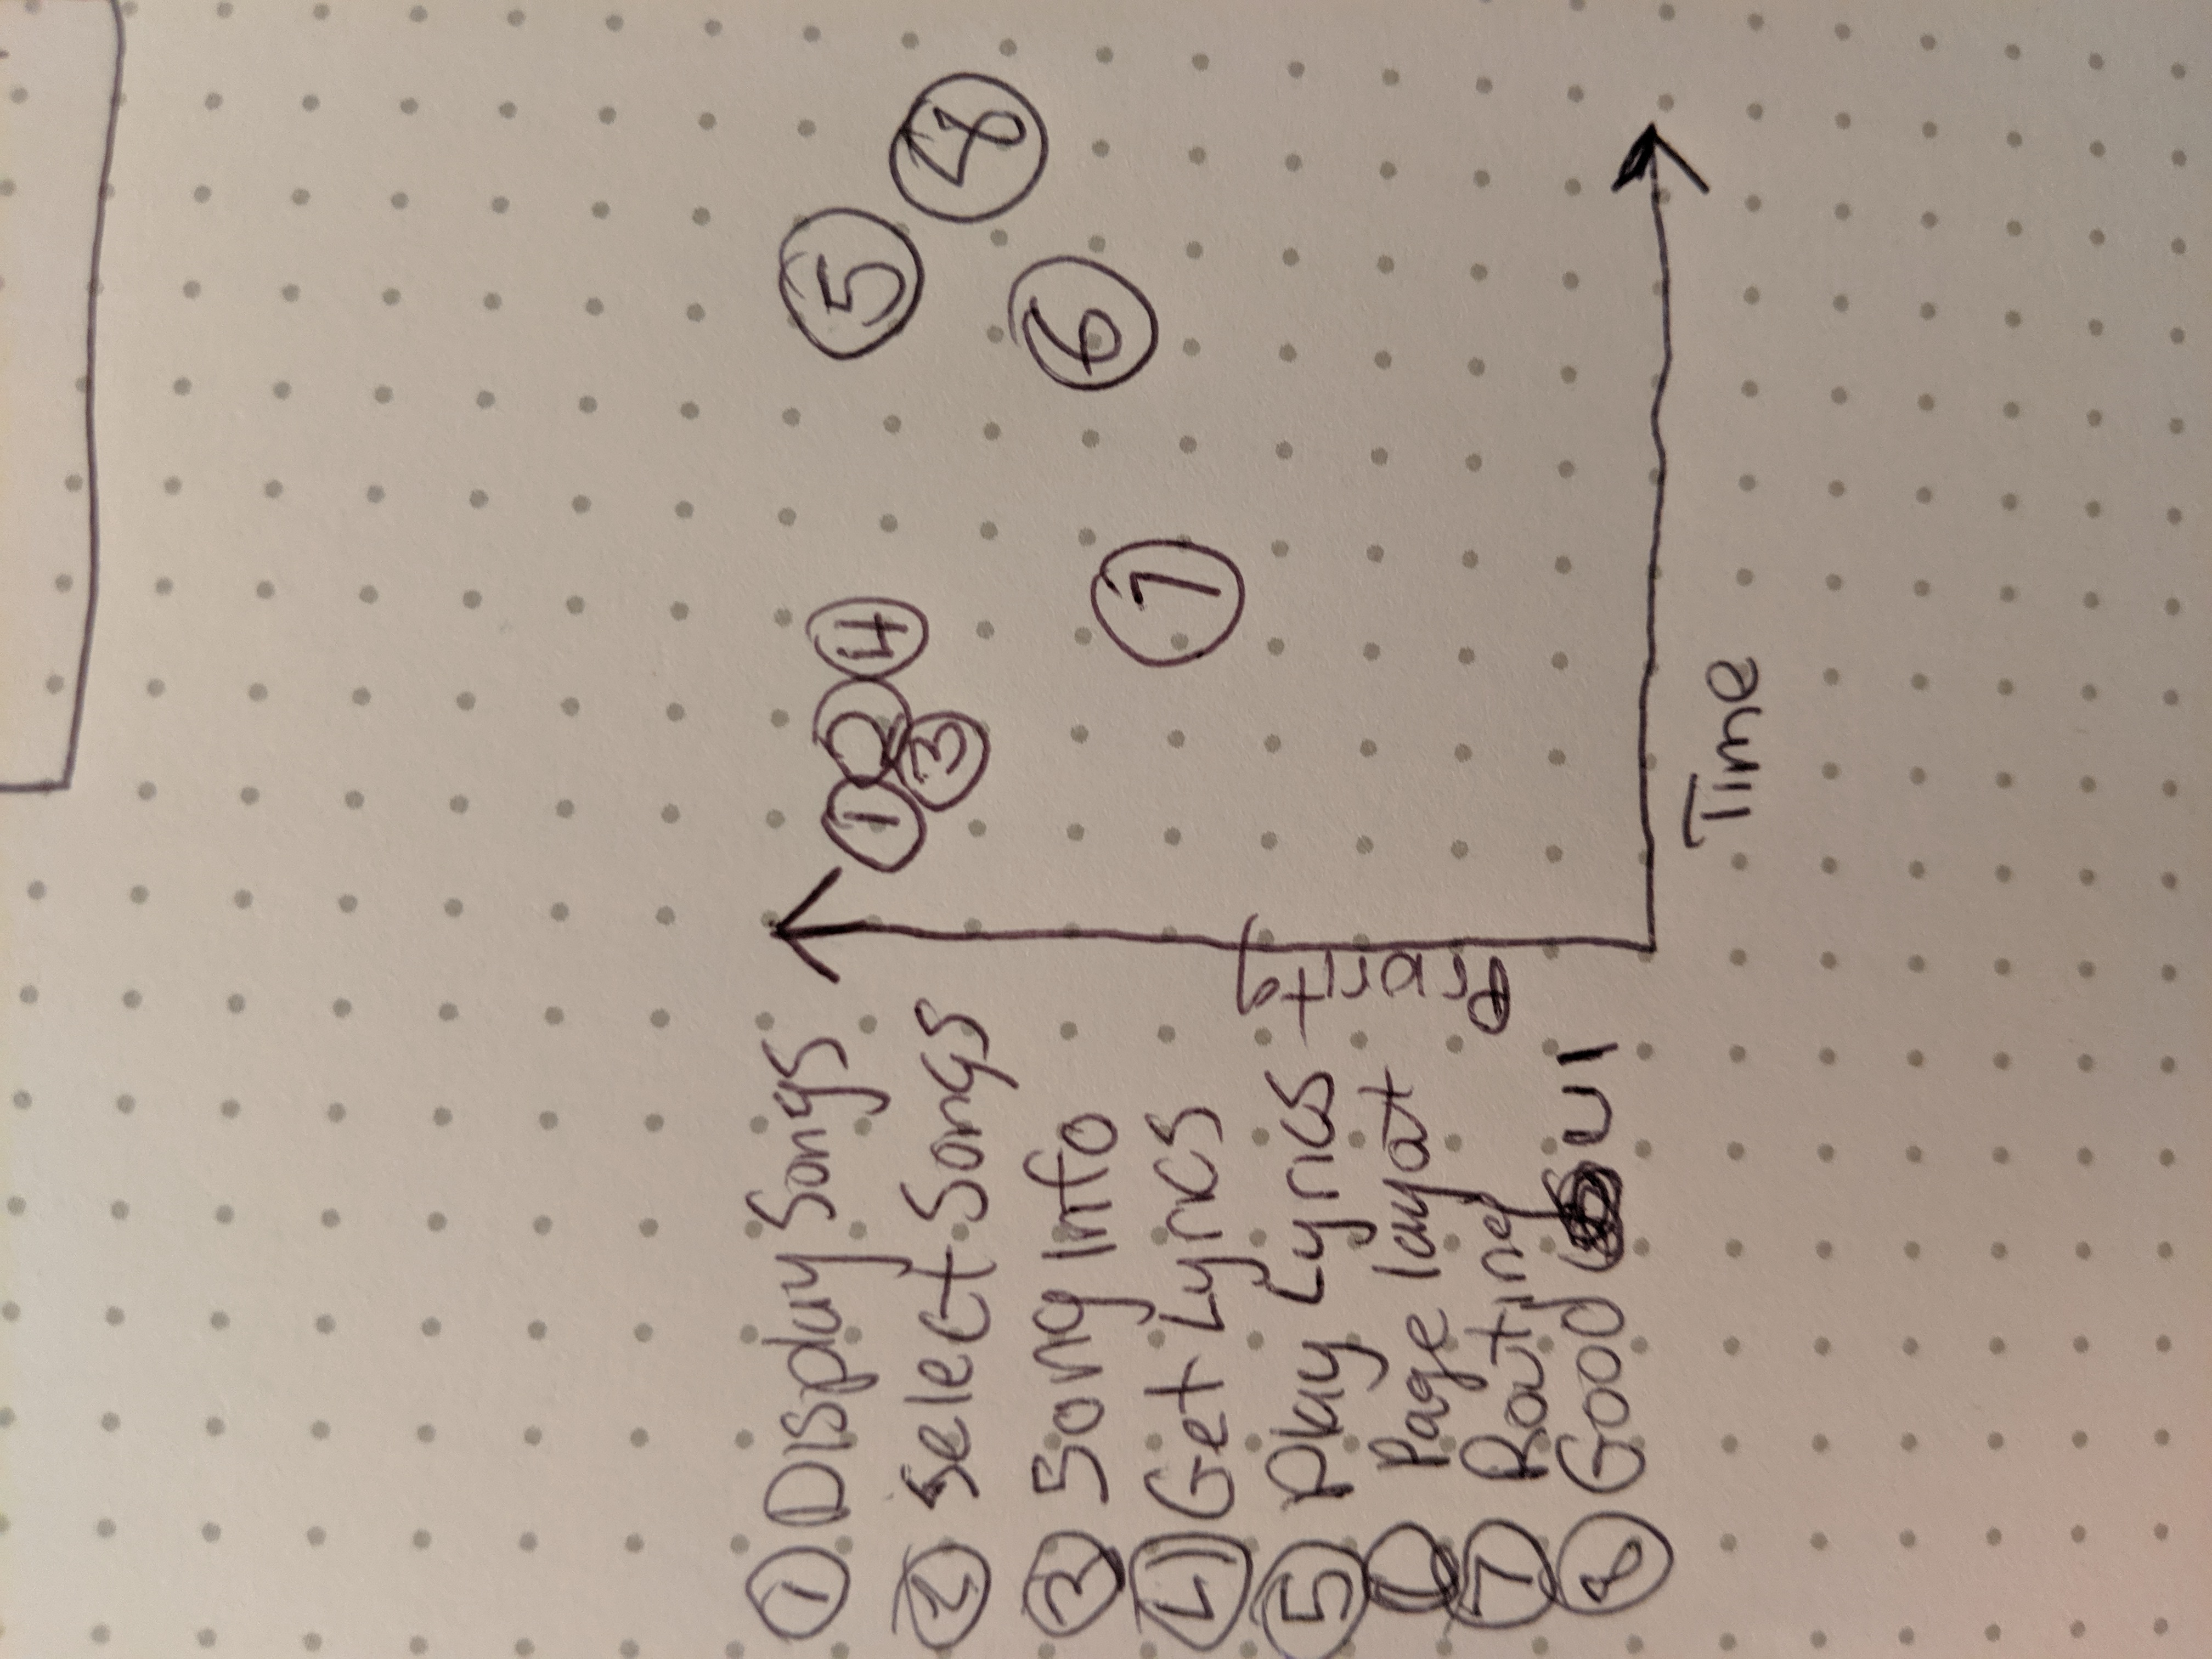 ① Display Songs
② Select Songs
③ Song Info
④ Get Lyrics
⑤ Play Lyrics
⑥ Page layout
⑦ Routing
⑧ Good UI
Priority
① ② ④ ⑤
③ ⑧
⑥
⑦
Time